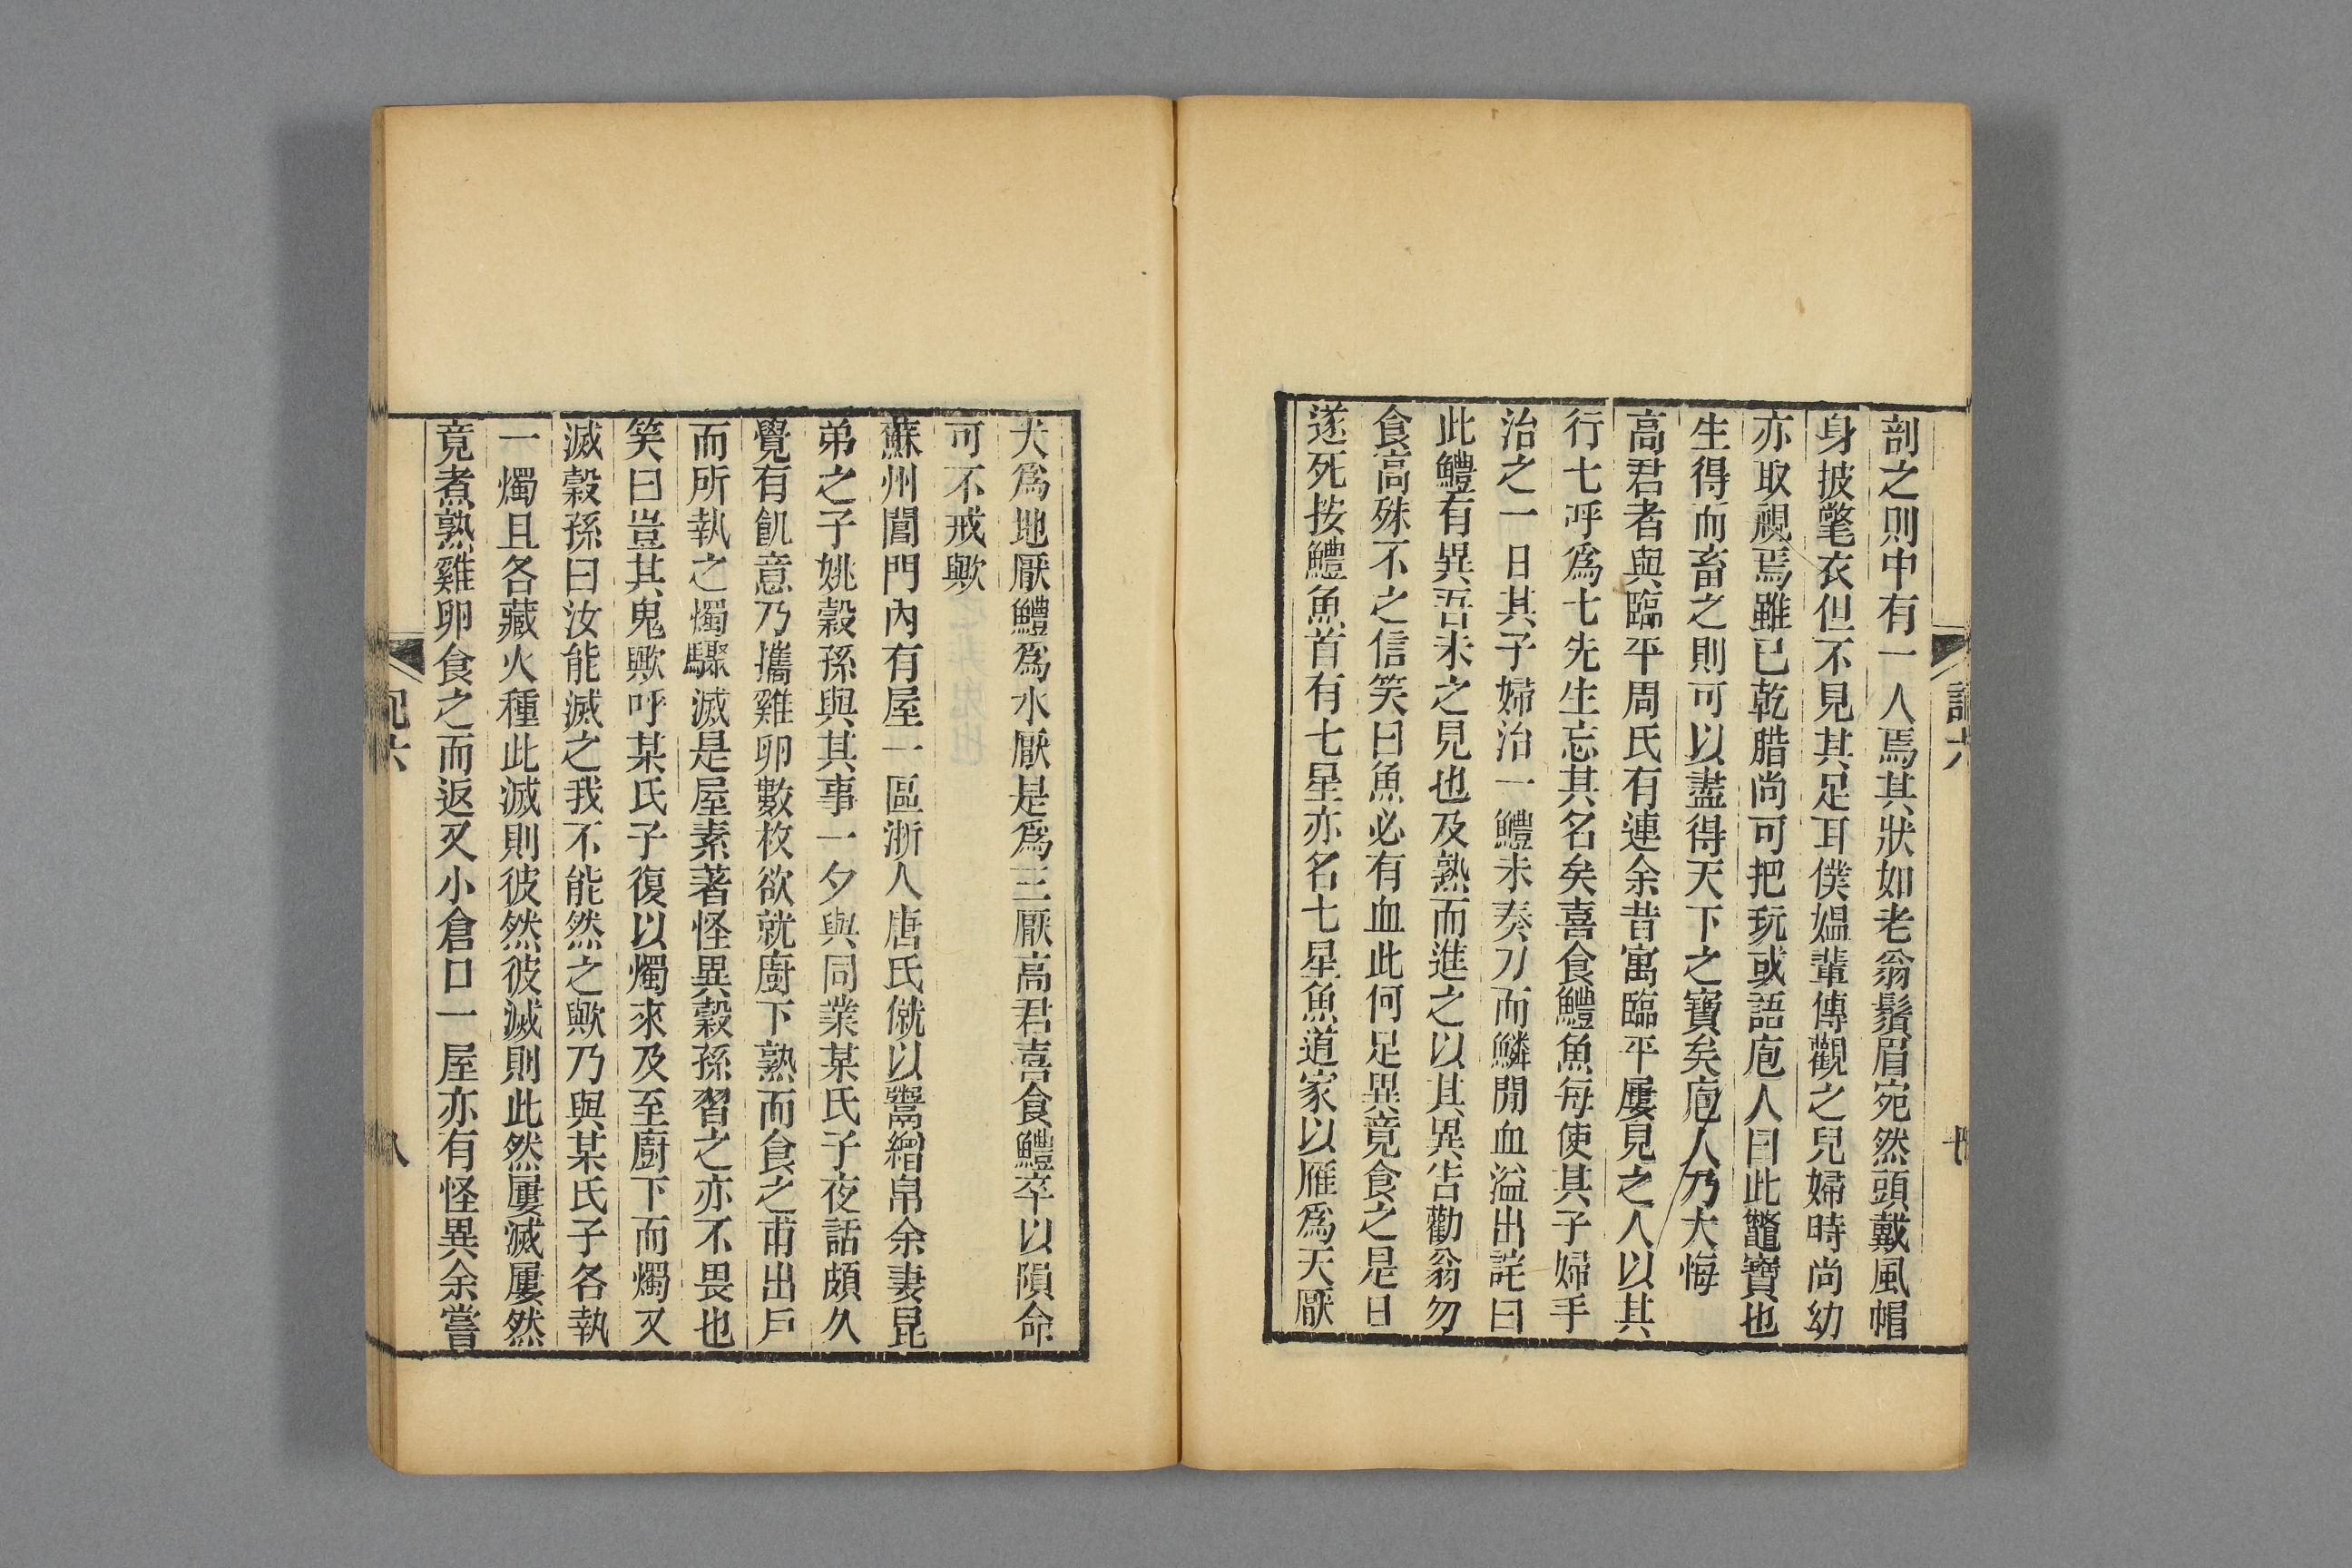 剖之則中有一人焉其狀如老翁鬚眉宛然頭戴風帽
身披氅衣但不見其足耳僕媼輩傳觀之兒婦時尚幼
亦取視焉雖已乾腊尚可把玩或語庖人曰此鼈寶也
生得而畜之則可以盡得天下之寶矣庖人乃大悔
高君者與臨平周氏有連余昔寓臨平屢見之人以其
行七呼爲七先生忘其名矣喜食鱧魚每使其子婦手
治之一日其子婦治一鱧未奏刀而鱗開血溢出詫曰
此鱧有異吾未之見也及熟而進之以其異告勸翁勿
食高殊不之信笑曰魚必有血此何足異竟食之是日
遂死按鱧魚首有七星亦名七星魚道家以雁爲天厭
犬爲地厭鱧爲水厭是爲三厭高君喜食鱧卒以隕命
可不戒歟
蘇州閶門內有屋一區浙人唐氏僦以鬻繒帛余妻昆
弟之子姚穀孫與其事一夕與同業某氏子夜話頗久
覺有飢意乃攜雞卵數枚欲就廚下熟而食之甫出戶
而所執之燭驟滅是屋素著怪異穀孫習之亦不畏也
笑曰豈其鬼歟呼某氏子復以燭來及至廚下而燭又
滅穀孫曰汝能滅之我不能然之歟乃與某氏子各執
一燭且各藏火種此滅則彼然彼滅則此然屢滅屢然
竟煮熟雞卵食之而返又小倉口一屋亦有怪異余嘗